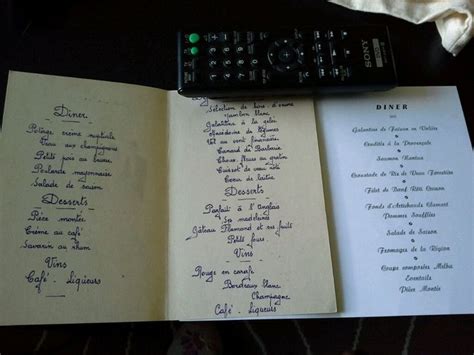 SONY
Dîner
Potage crème nuptiale
Veau aux champignons
Petits pois au beurre
Poularde mayonnaise
Salade de saison
Desserts
Pièce montée
Crème au café
Savarin au rhum
Vins
Café - Liqueurs
Sélection de hors d'œuvre
Jambon blanc
Galantine à la gelée
Macédoine de légumes
Canard de Barbarie
Choux fleurs au gratin
Cuissot de veau rôti
Cœur de laitue
Desserts
Parfait à l'Anglaise
Ses madeleines
Gâteau Flamand et ses fruits
Petits fours
Vins
Rouge en carafe
Bordeaux blanc
Champagne
Café - Liqueurs
DINER
Galantine de Saison en Volière
Crudités à la Provençale
Saumon Nantua
Croustade de Ris de Veau Favorites
Filet de Bœuf Rôti Cresson
Fonds d'Artichauts Clamart
Pommes Soufflées
Salade de Saison
Fromages de la Région
Coupe composées Melba
Eventails
Pièce Montée